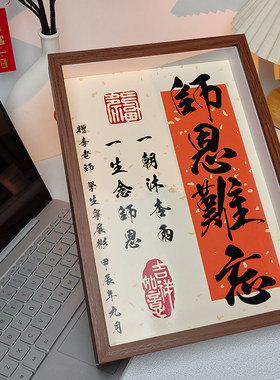 師恩難忘
一朝沐杏雨
一生念師恩
贈李老師 學生寧展樹 甲辰年九月
吉祥如意